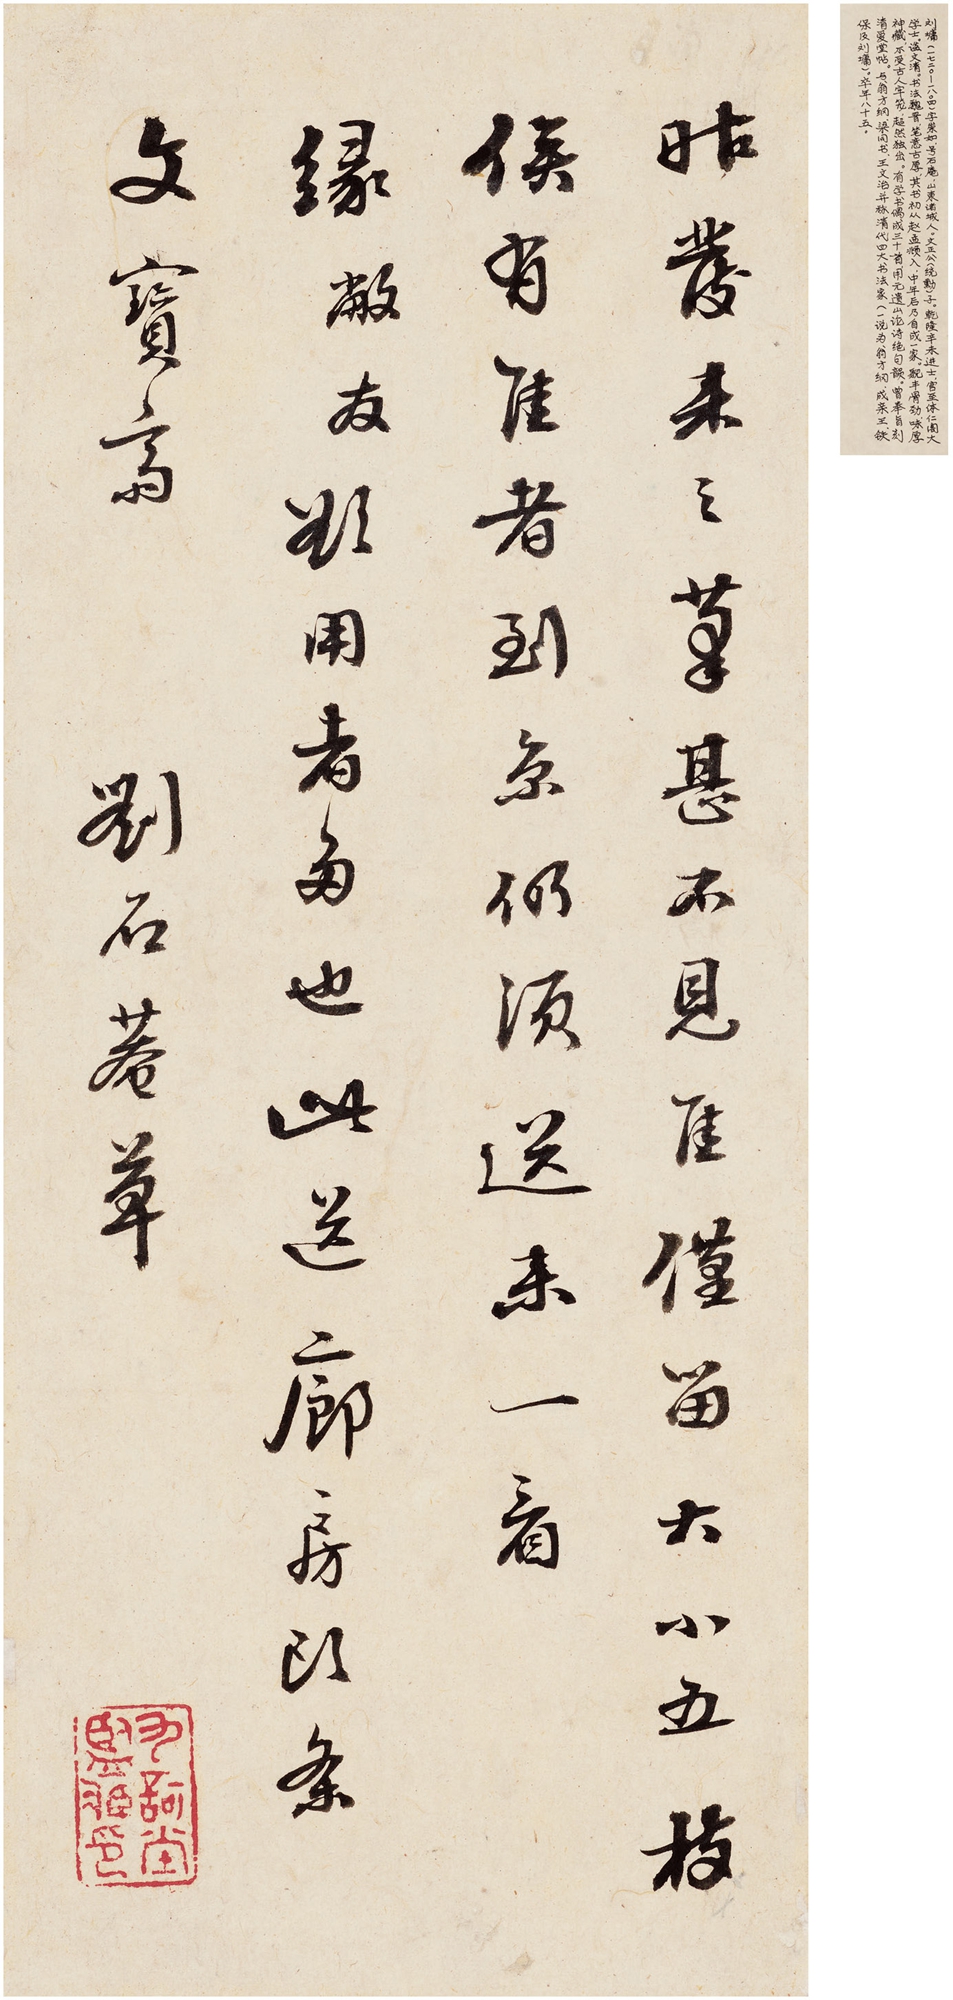 昨发来之筆甚不見佳僅留大小五枝
俟有佳者到京仍須送来一看
緣敝友欲用者多也此送廊房头条
文寶斋
劉石菴草
刘墉(一七二〇—一八〇四)字崇如,号石庵,山东诸城人。文正公(统勳)子。乾隆辛未进士,官至体仁阁大
学士。谥文清。书法魏晋,笔意古厚。其书初从赵孟頫入,中年后乃自成一家。貌丰骨劲,味厚
神藏,不受古人牢笼,超然独出。有学书偶成三十首,用元遗山论诗绝句韻。曾奉旨刻
清爱堂帖。与翁方纲、梁同书、王文治并称清代四大书法家(一说为翁方纲、成亲王、铁
保及刘墉)。卒年八十五。